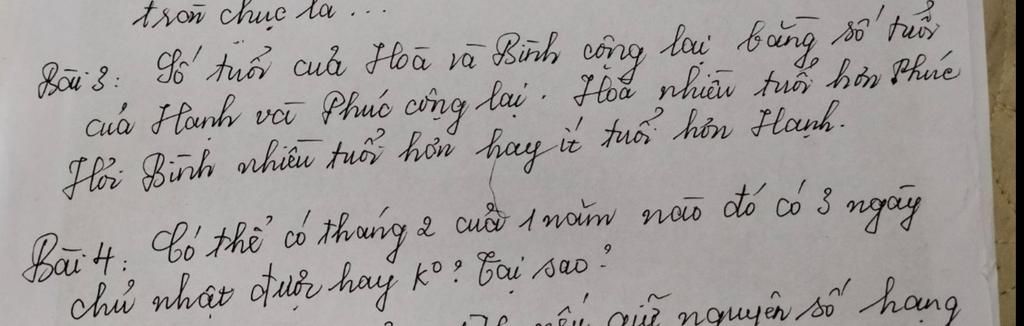 tròn chục là ...
Bài 3: Số tuổi của Hoà và Bình cộng lại bằng số tuổi
của Hạnh và Phúc cộng lại. Hoà nhiều tuổi hơn Phúc
Hỏi Bình nhiều tuổi hơn hay ít tuổi hơn Hạnh.
Bài 4: Có thể có tháng 2 của 1 năm nào đó có 3 ngày
chủ nhật được hay k⁰? Tại sao?
nếu giữ nguyên số hạng